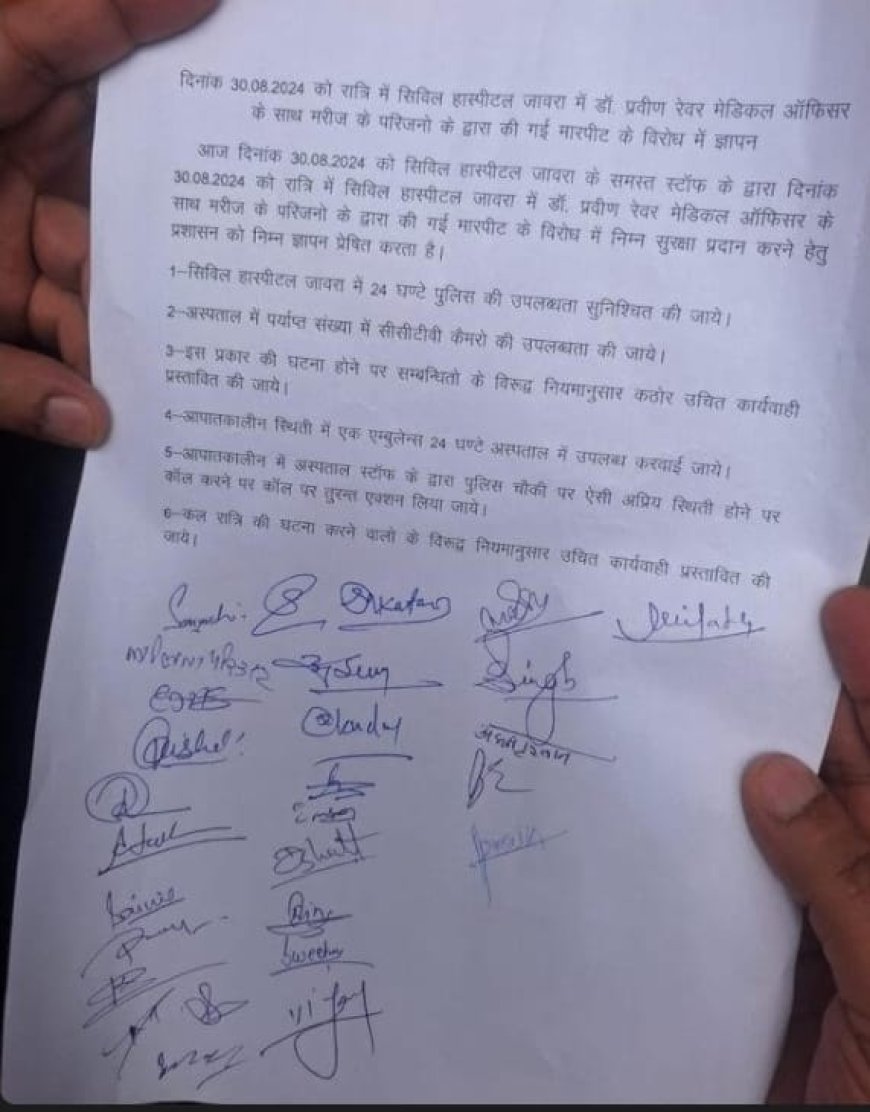 दिनांक 30.08.2024 को रात्रि में सिविल हास्पीटल जावरा में डॉ. प्रवीण रेवर मेडिकल ऑफिसर
के साथ मरीज के परिजनो के द्वारा की गई मारपीट के विरोध में ज्ञापन
आज दिनांक 30.08.2024 को सिविल हास्पीटल जावरा के समस्त स्टॉफ के द्वारा दिनांक
30.08.2024 को रात्रि में सिविल हास्पीटल जावरा में डॉ. प्रवीण रेवर मेडिकल ऑफिसर के
साथ मरीज के परिजनो के द्वारा की गई मारपीट के विरोध में निम्न सुरक्षा प्रदान करने हेतु
प्रशासन को निम्न ज्ञापन प्रेषित करता है।
1–सिविल हास्पीटल जावरा में 24 घण्टे पुलिस की उपलब्धता सुनिश्चित की जाये।
2–अस्पताल में पर्याप्त संख्या में सीसीटीवी कैमरो की उपलब्धता की जाये।
3–इस प्रकार की घटना होने पर सम्बन्धितो के विरूद्ध नियमानुसार कठोर उचित कार्यवाही
प्रस्तावित की जाये।
4–आपातकालीन स्थिती में एक एम्बुलेन्स 24 घण्टे अस्पताल में उपलब्ध करवाई जाये।
5–आपातकालीन में अस्पताल स्टॉफ के द्वारा पुलिस चौकी पर ऐसी अप्रिय स्थिती होने पर
कॉल करने पर कॉल पर तुरन्त एक्शन लिया जाये।
6–कल रात्रि की घटना करने वालो के विरूद्ध नियमानुसार उचित कार्यवाही प्रस्तावित की
जाये।
Singh
Vijay